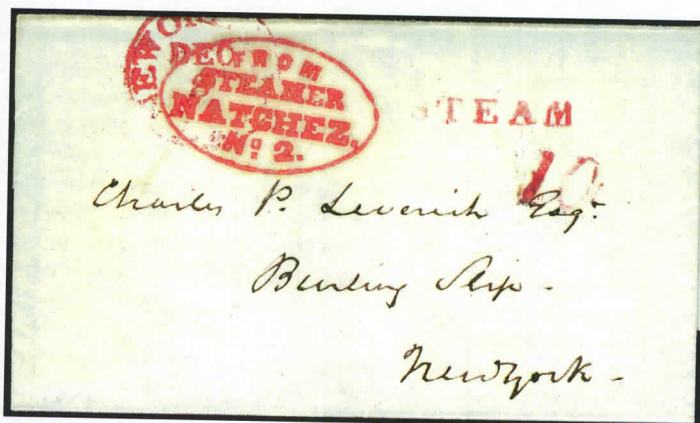 DEC
FROM
STEAMER
NATCHEZ,
Nº 2.
STEAM
10
Charles P. Leverich Esqr.
Burling Slip -
Newyork -